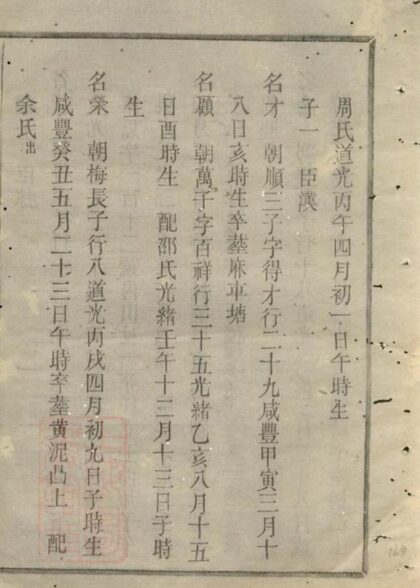 周氏道光丙午四月初一日午時生
子一 臣漢
名才 朝順三子字得才行二十九咸豐甲寅三月十
八日亥時生卒塟麻車塘
名顧 朝萬千字百祥行三十五光緒乙亥八月十五
日酉時生 配邵氏光緒壬午十二月十三日子時
生
名榮 朝梅長子行八道光丙戌四月初九日子時生
咸豐癸丑五月二十三日午時卒塟黄泥凸上 配
余氏出
169